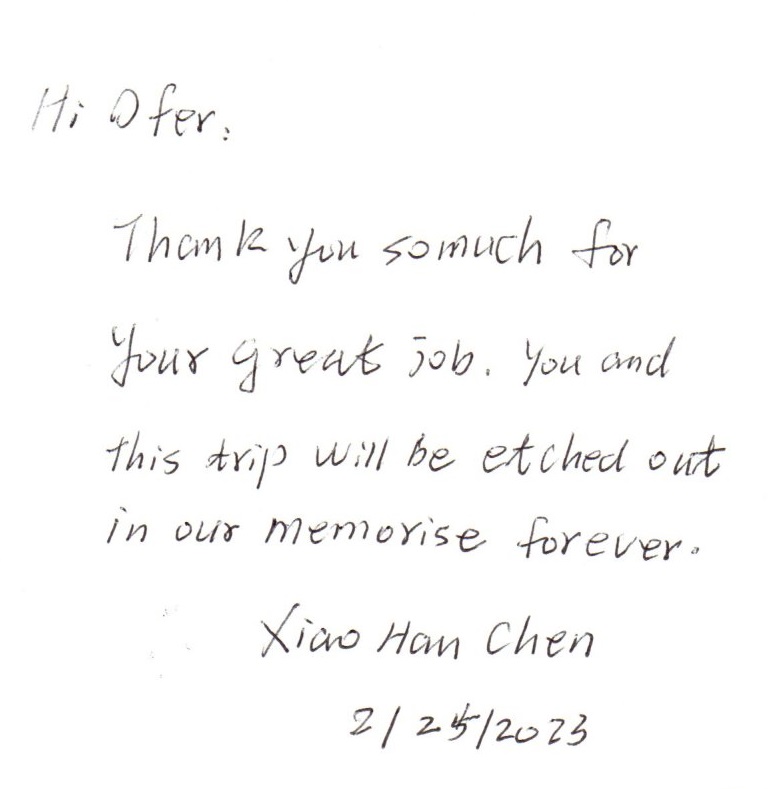 Hi Ofer,
Thank you somuch for
your great job. You and
this trip will be etched out
in our memorise forever.
Xiao Han Chen
2/25/2023